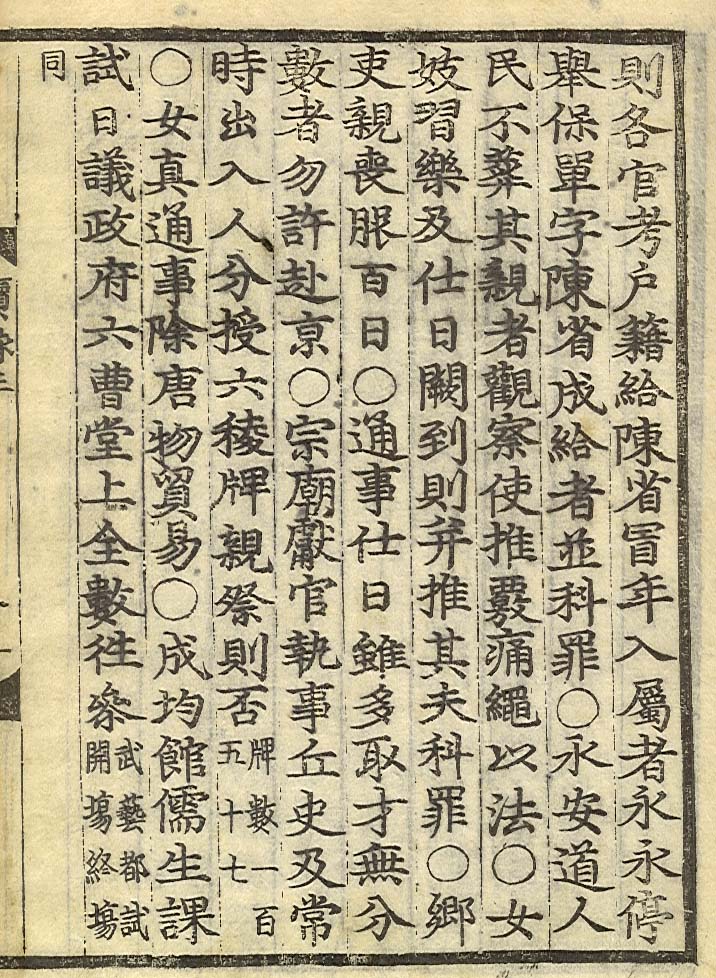 則各官考戶籍給陳省冒年入屬者永永停
舉保單字陳省成給者並科罪○永安道人
民不葬其親者觀察使推覈痛繩以法○女
妓習樂及仕日闕到則并推其夫科罪○鄉
吏親喪服百日○通事仕日雖多取才無分
數者勿許赴京○宗廟獻官執事丘史及常
時出入人分授六稜牌親祭則否牌數一百五十七
○女真通事除唐物貿易○成均館儒生課
試日議政府六曹堂上全數往參武藝都試開場終場
同